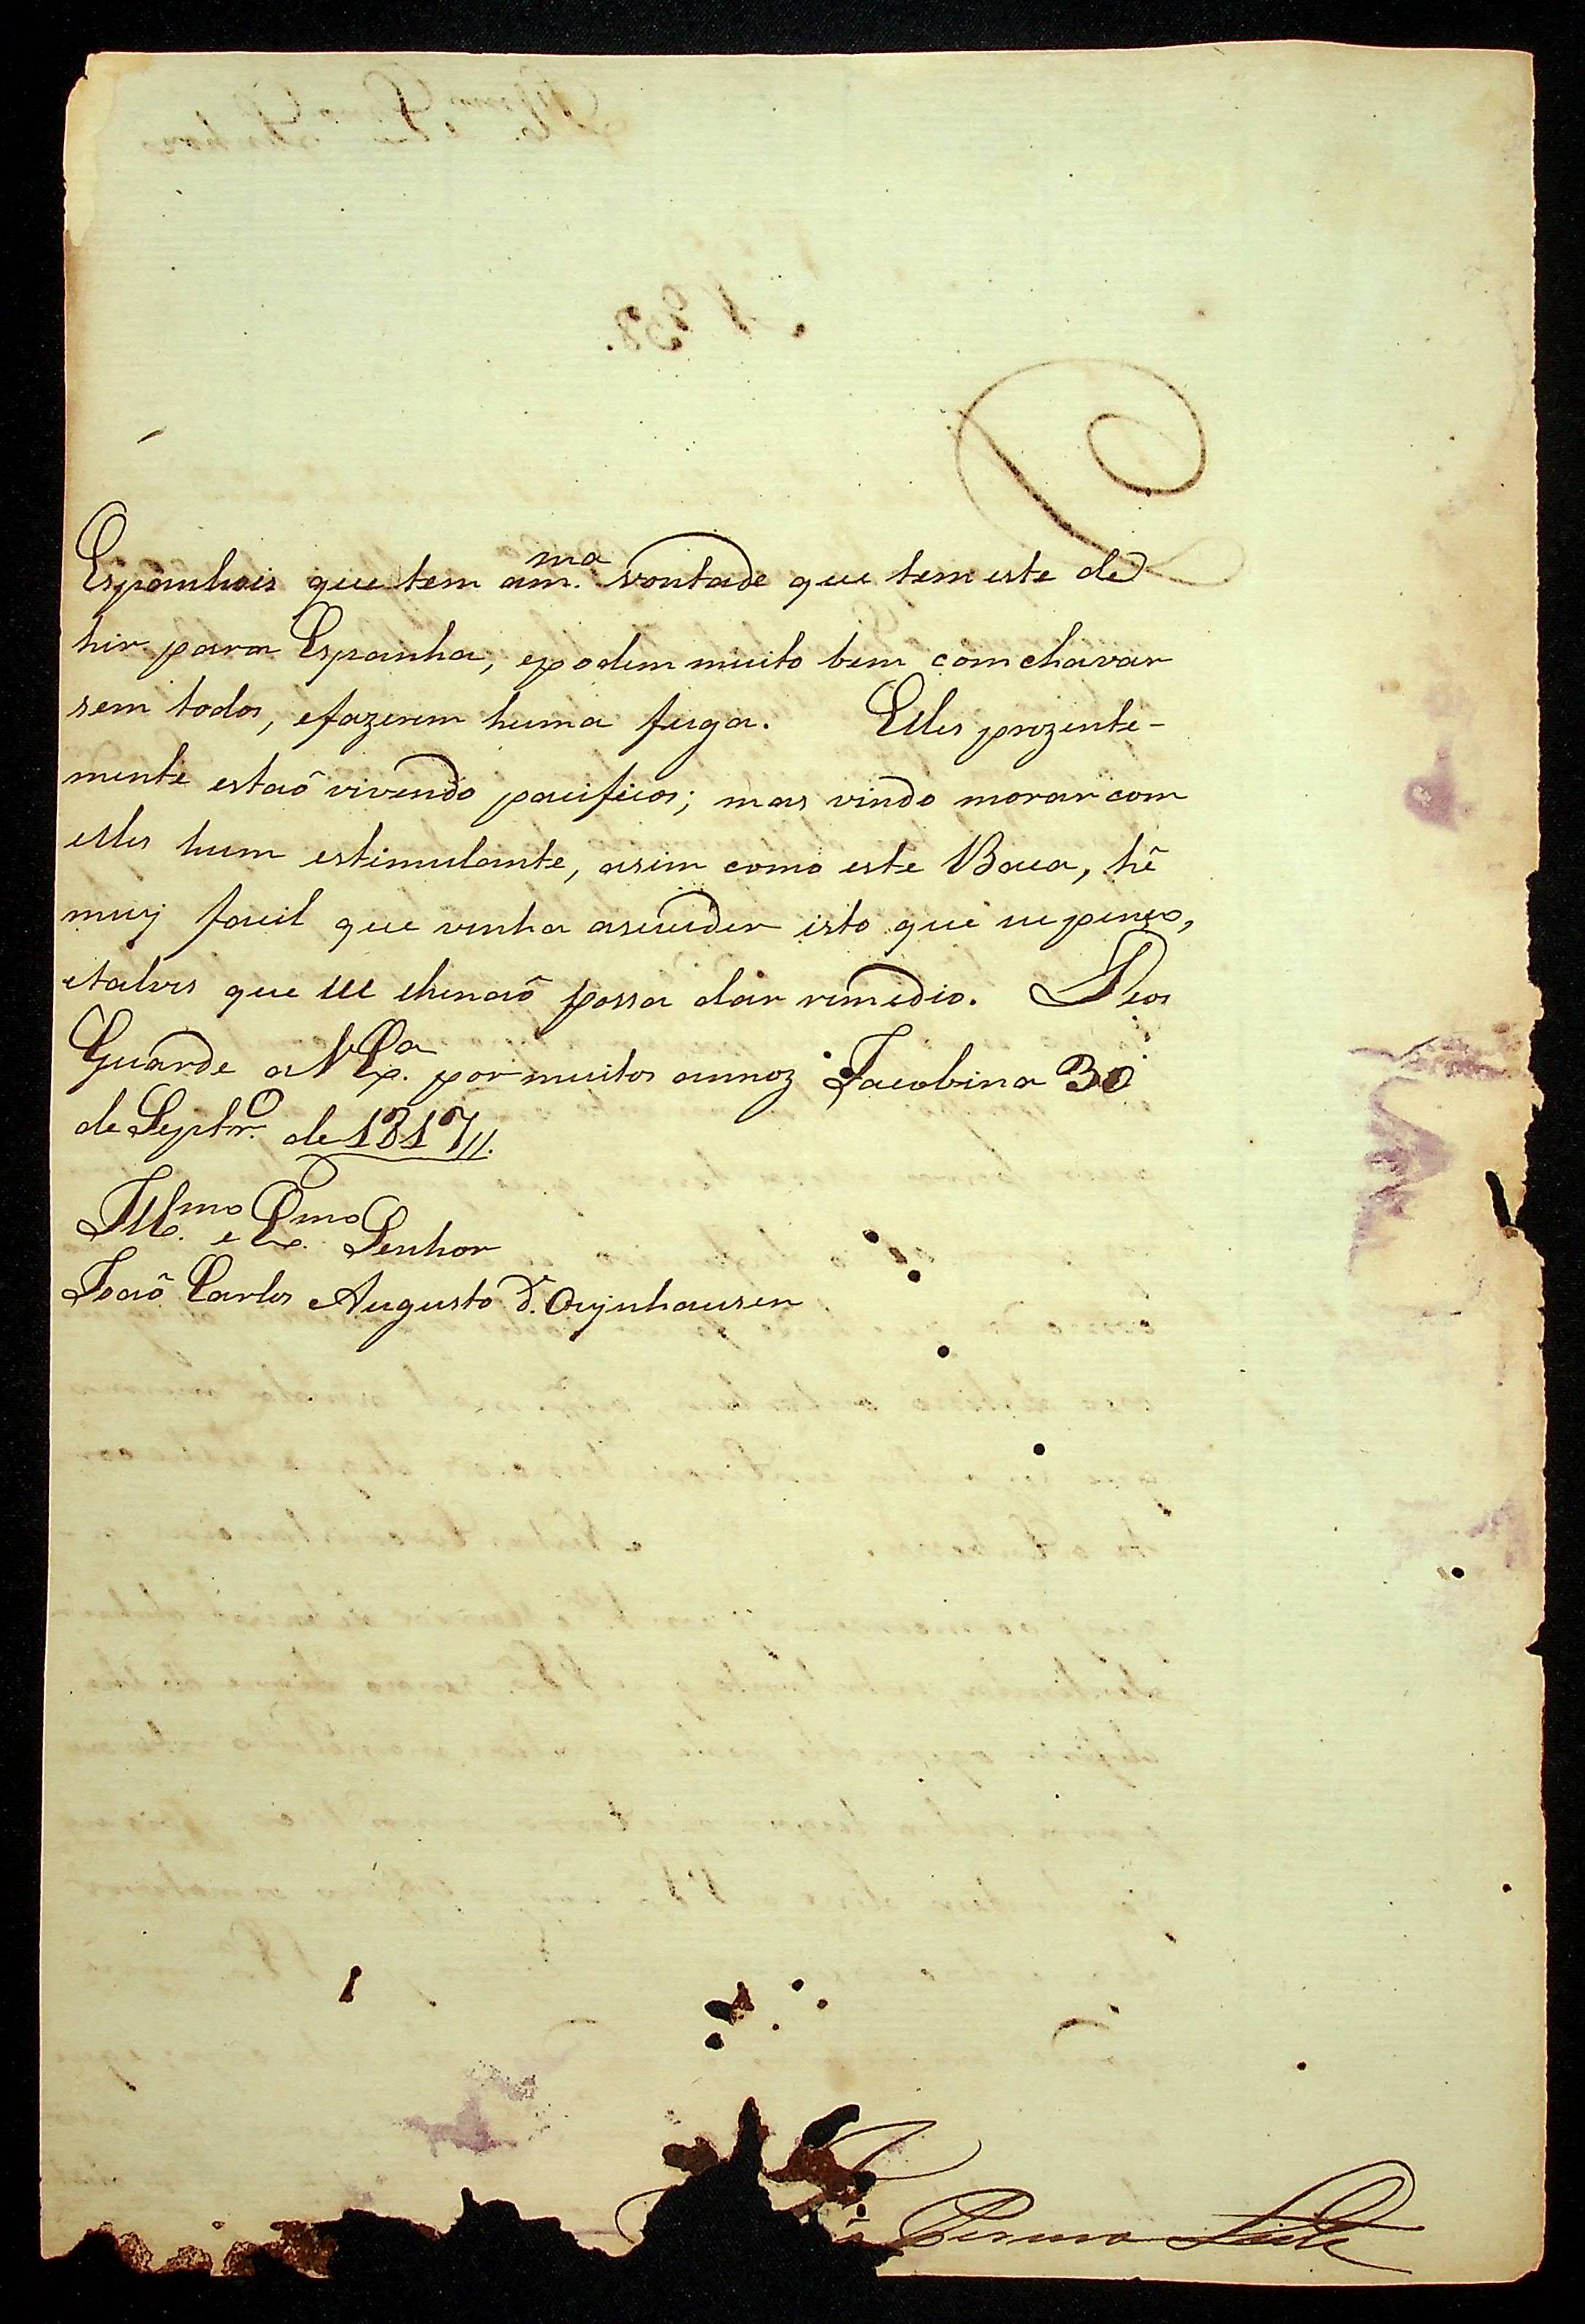 Espanhois que tem am.ma vontade que tem este de
hir para Espanha, epodem muito bem comchavar
sem todos, efazerem huma fuga. Elles prezente-
mente estaõ vivendo pacificos; mas vindo morar com
elles hum estimulante, asim como este Baca, hê
muy facil que venha asuceder isto que eu penso,
etalves que se lhe naõ possa dar remedio. Deos
Guarde a V Ex.a por muitos annoz Jacobina 30
de Septr.o de 1817//.
Ill.mo e Ex.mo Senhor
Joaõ Carlos Augusto d'Oeynhausen
Pereira Leite